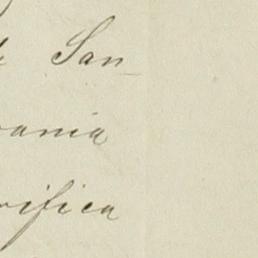 San
ania
rifica